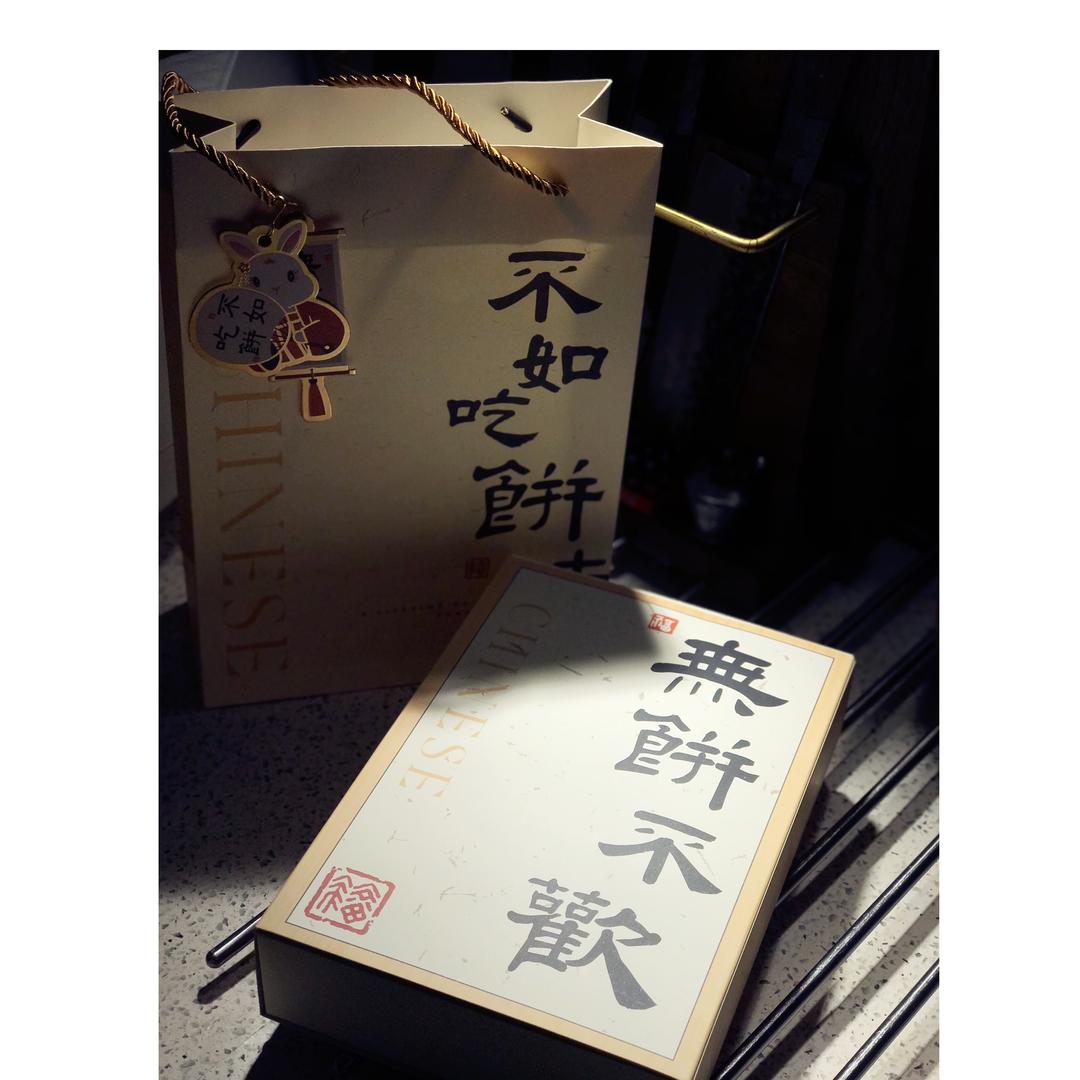 不如吃餅去
不如
吃餅
CHINESE
福
無餅不歡
CHINESE
福